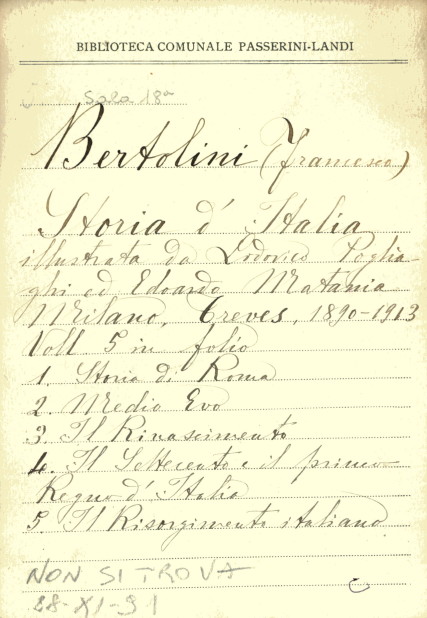 BIBLIOTECA COMUNALE PASSERINI-LANDI
Sala 18a
Bertolini (Francesco)
Storia d' Italia
illustrata da Lodovico Poglia-
ghi ed Edoardo Matania
Milano, Treves, 1890-1913
Voll 5 in folio
1. Storia di Roma
2. Medio Evo
3. Il Rinascimento
4. Il Settecento e il primo
Regno d' Italia
5. Il Risorgimento italiano
NON SI TROVA
28-XI-91